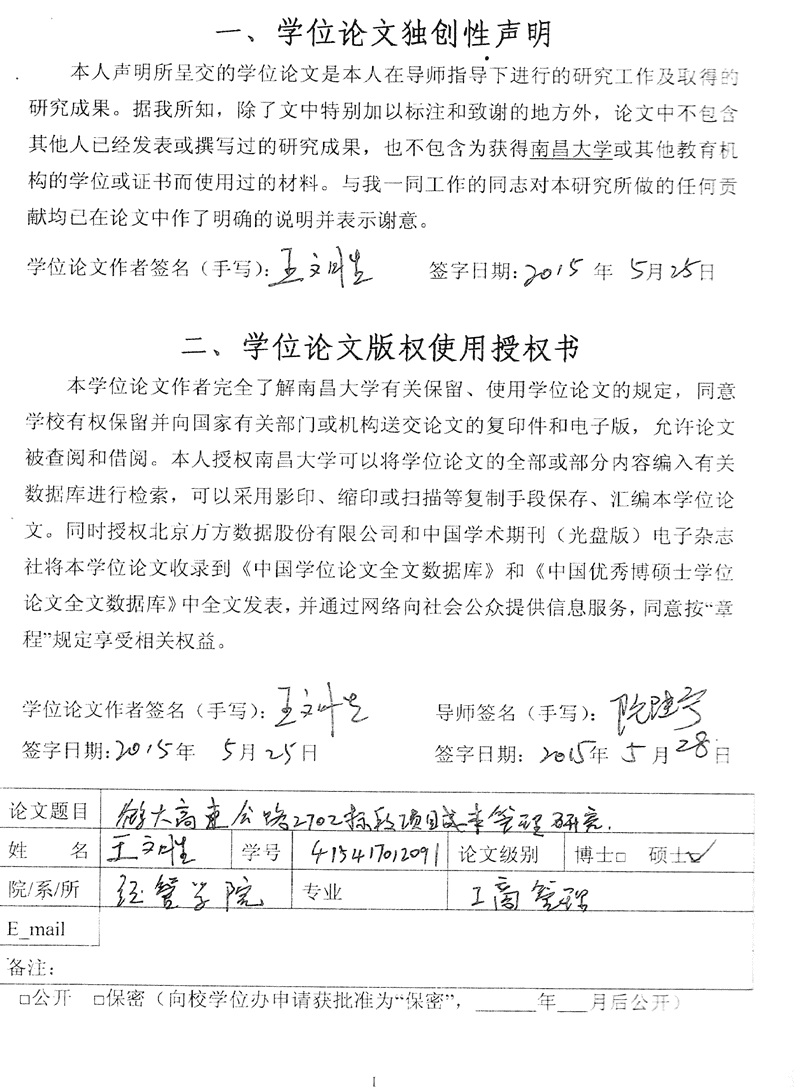 一、学位论文独创性声明
本人声明所呈交的学位论文是本人在导师指导下进行的研究工作及取得的
研究成果。据我所知，除了文中特别加以标注和致谢的地方外，论文中不包含
其他人已经发表或撰写过的研究成果，也不包含为获得南昌大学或其他教育机
构的学位或证书而使用过的材料。与我一同工作的同志对本研究所做的任何贡
献均已在论文中作了明确的说明并表示谢意。
学位论文作者签名（手写）：王文 签字日期：2015 年 5月25日
二、学位论文版权使用授权书
本学位论文作者完全了解南昌大学有关保留、使用学位论文的规定，同意
学校有权保留并向国家有关部门或机构送交论文的复印件和电子版，允许论文
被查阅和借阅。本人授权南昌大学可以将学位论文的全部或部分内容编入有关
数据库进行检索，可以采用影印、缩印或扫描等复制手段保存、汇编本学位论
文。同时授权北京万方数据股份有限公司和中国学术期刊（光盘版）电子杂志
社将本学位论文收录到《中国学位论文全文数据库》和《中国优秀博硕士学位
论文全文数据库》中全文发表，并通过网络向社会公众提供信息服务，同意按“章
程”规定享受相关权益。
学位论文作者签名（手写）：王文 导师签名（手写）：
签字日期：2015年 5月25日 签字日期： 2015年 5月28日
论文题目 大高速公路 标段项目成本管理研究.
姓 名 王文 学号 415417012091 论文级别 博士□ 硕士☑
院/系/所 经管学院 专业 工商管理
E_mail
备注：
□公开 □保密（向校学位办申请获批准为“保密”，______年___月后公开）
I